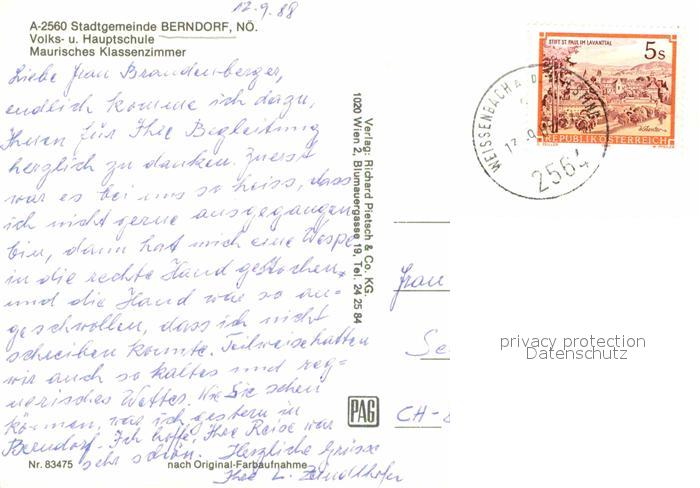 12.9.88
A-2560 Stadtgemeinde BERNDORF, NÖ.
Volks- u. Hauptschule
Maurisches Klassenzimmer
Liebe Frau Brandenberger,
endlich komme ich dazu,
Ihnen für Ihre Begleitung
herzlich zu danken. Zuerst
war es bei uns so heiss, dass
ich nicht gerne ausgegangen
bin, dann hat mich eine Wespe
in die rechte Hand gestochen
und die Hand war so an-
geschwollen, dass ich nicht
schreiben konnte. Teilweise hatten
wir auch so kaltes und reg-
nerisches Wetter. Wie Sie sehen
können, war ich gestern in
Berndorf. Ich hoffe, Ihre Reise war
sehr schön. Herzliche Grüsse
Ihre L.
Nr. 83475
nach Original-Farbaufnahme
Verlag: Richard Pietsch & Co. KG.
1020 Wien 2, Blumauergasse 19, Tel. 24 25 84
PAG
Frau
CH-8
STIFT ST. PAUL IM LAVANTTAL
5s
REPUBLIK ÖSTERREICH
WEISSENBACH A. D.
2564
privacy protection
Datenschutz